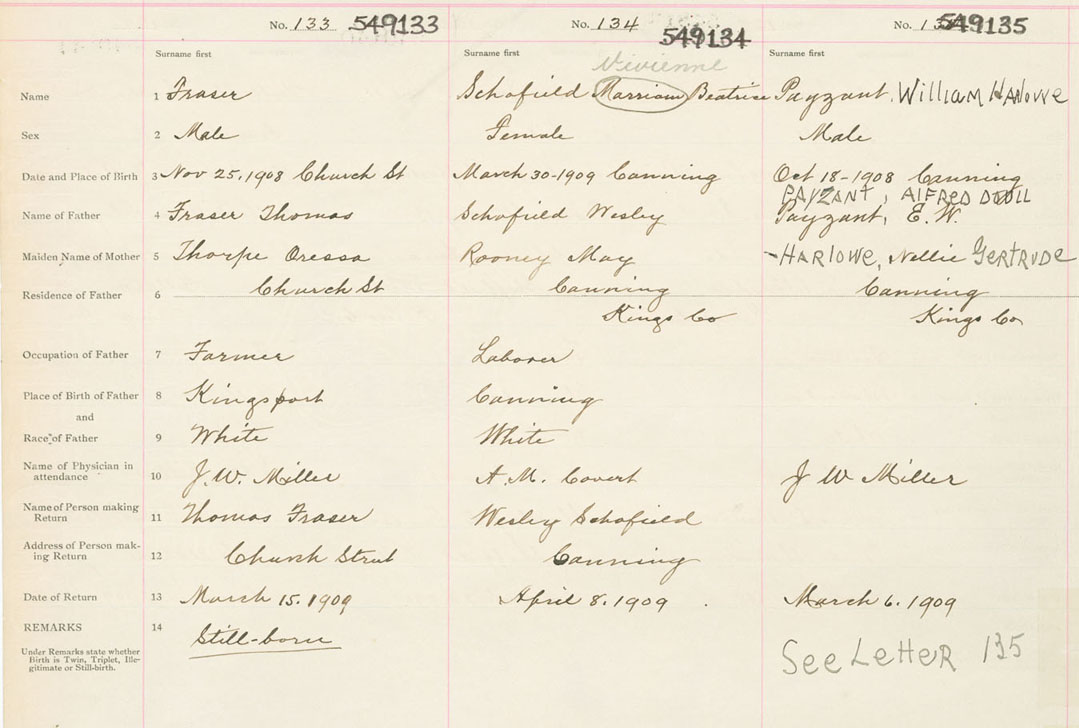 No. 133 549133 No. 134 549134 No. 549135
Surname first Surname first Surname first
Vivienne
Name 1 Fraser Schofield Marriam Beatrice Payzant, William Harlowe
Sex 2 Male Female Male
Date and Place of Birth 3 Nov 25, 1908 Church St March 30-1909 Canning Oct 18-1908 Canning
PAYZANT, ALFRED
Name of Father 4 Fraser Thomas Schofield Wesley Payzant, E. W.
Maiden Name of Mother 5 Thorpe Oressa Rooney May HARLOWE, Nellie GERTRUDE
Residence of Father 6 Church St Canning Canning
Kings Co Kings Co
Occupation of Father 7 Farmer Laborer
Place of Birth of Father 8 Kingsport Canning
and
Race of Father 9 White White
Name of Physician in
attendance 10 J. W. Miller A. M. Covert J W Miller
Name of Person making
Return 11 Thomas Fraser Wesley Schofield
Address of Person mak-
ing Return 12 Church Street Canning
Date of Return 13 March 15. 1909 April 8. 1909 March 6. 1909
REMARKS 14 Still-born
Under Remarks state whether
Birth is Twin, Triplet, Ille-
gitimate or Still-birth.
See Letter 135